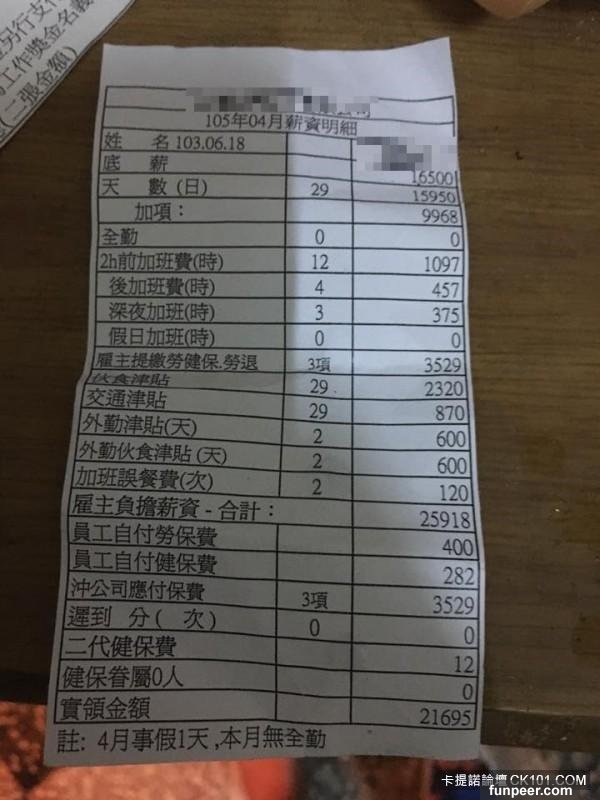 另行支付
工作獎金名義
(二張金額)
公司
105年04月薪資明細
姓 名 103.06.18
底 薪 16500
天 數 (日) 29 15950
加項： 9968
全勤 0 0
2h前加班費(時) 12 1097
後加班費(時) 4 457
深夜加班(時) 3 375
假日加班(時) 0 0
雇主提繳勞健保.勞退 3項 3529
伙食津貼 29 2320
交通津貼 29 870
外勤津貼(天) 2 600
外勤伙食津貼 (天) 2 600
加班誤餐費(次) 2 120
雇主負擔薪資 - 合計： 25918
員工自付勞保費 400
員工自付健保費 282
沖公司應付保費 3項 3529
遲到 分 ( 次) 0 0
二代健保費 12
健保眷屬0人 0
實領金額 21695
註: 4月事假1天 ,本月無全勤
卡提諾論壇 CK101.COM
funpeer.com